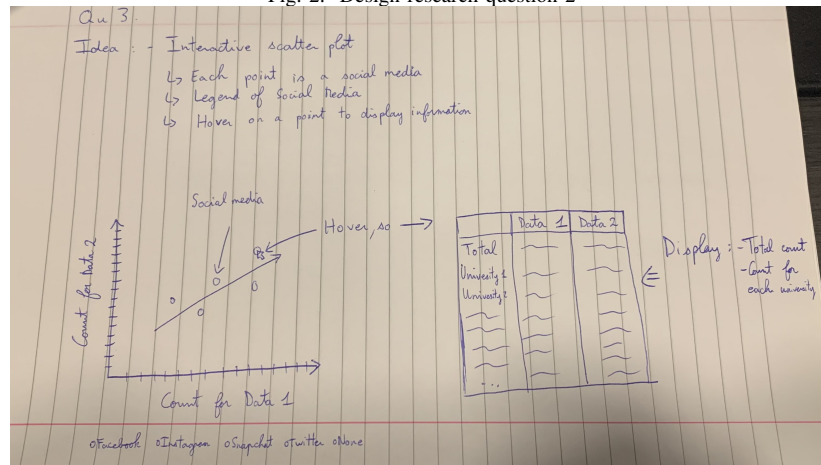 Fig. 2. Design research question 2
Qu 3.
Idea : - Interactive scatter plot
↳ Each point is a social media
↳ Legend of Social Media
↳ Hover on a point to display information
Social media
Hover, so →
Count for Data 2
Count for Data 1
Data 1 Data 2
Total
University 1
University 2
...
Display : - Total count
- Count for
each university
o Facebook o Instagram o Snapchat o Twitter o None